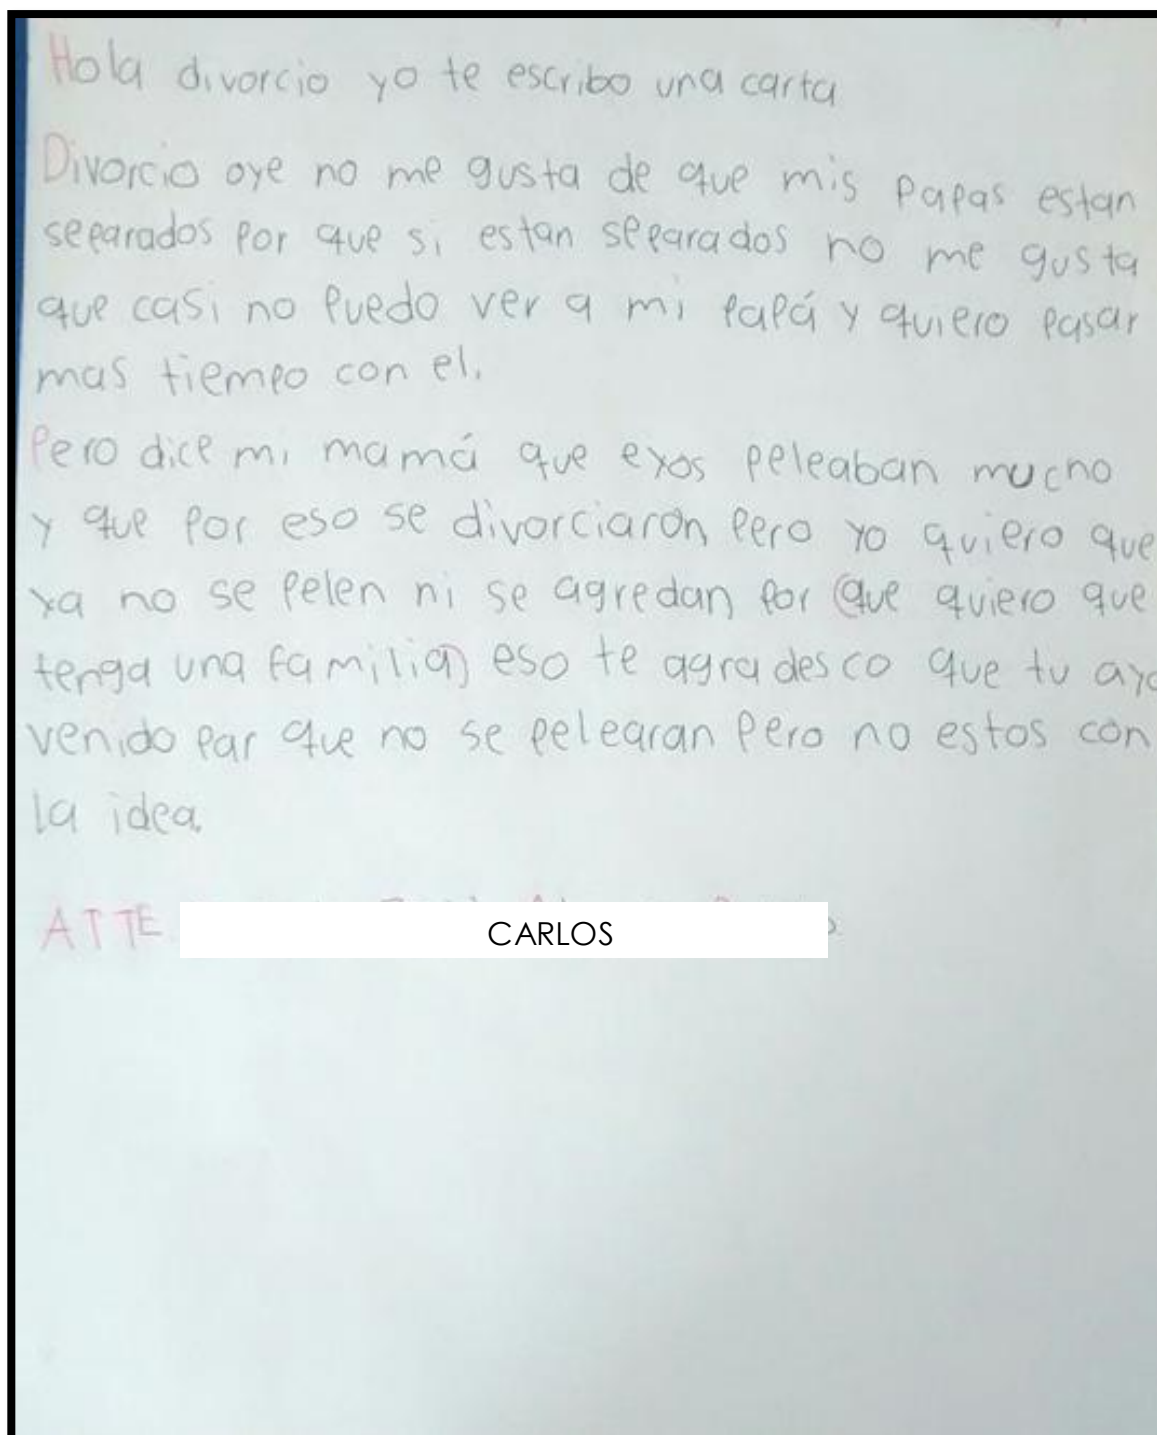 Hola divorcio yo te escribo una carta
Divorcio oye no me gusta de que mis papas estan
separados por que si estan separados no me gusta
que casi no puedo ver a mi papá y quiero pasar
mas tiempo con el.
Pero dice mi mamá que exos peleaban mucho
y que por eso se divorciaron, pero yo quiero que
ya no se pelen ni se agredan, por que quiero que
tenga una familia, eso te agradesco que tu aya
venido par que no se pelearan pero no estos con
la idea.
ATTE CARLOS